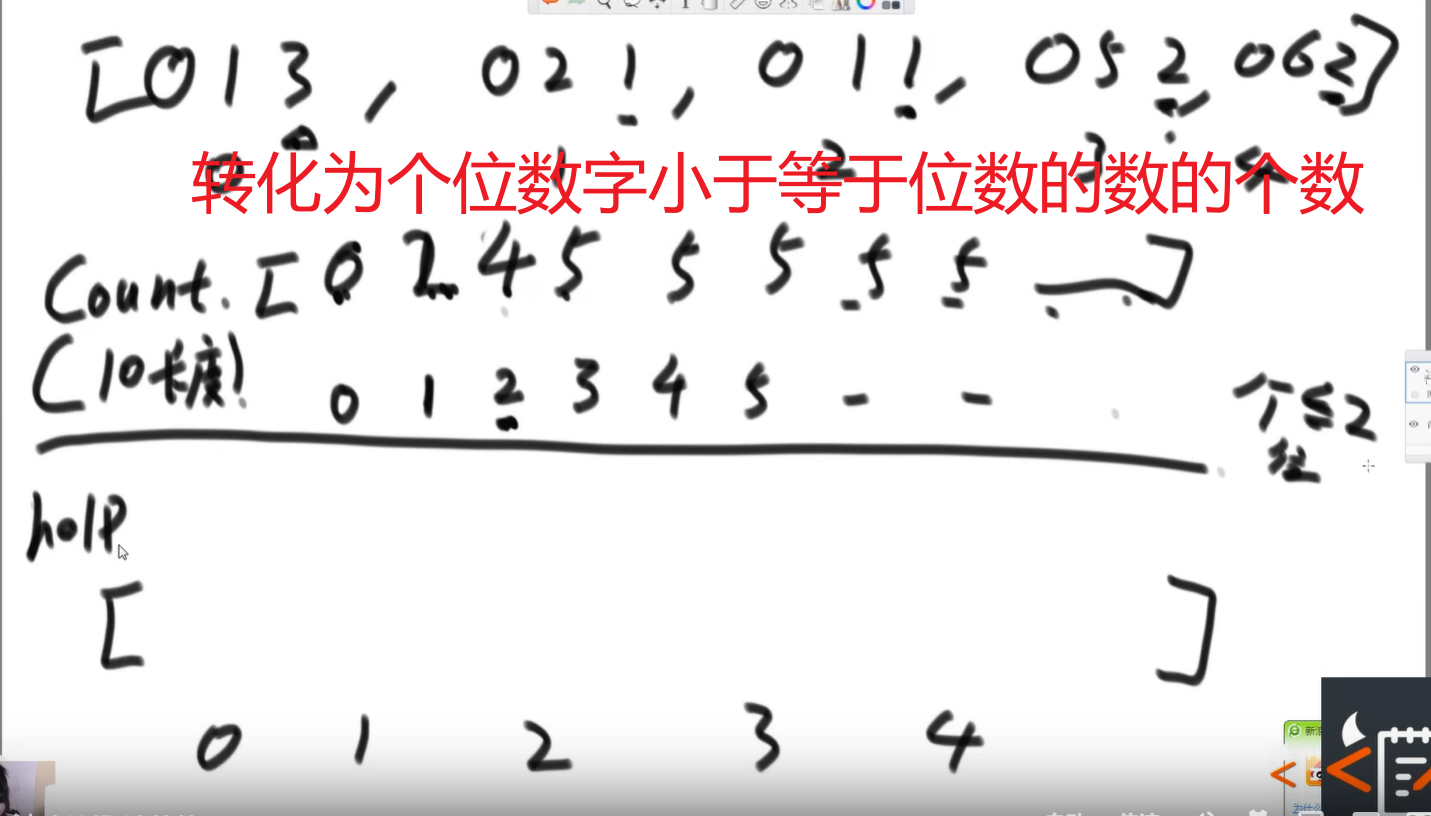 [013, 021, 011, 052, 062]
0 1 2 3 4
转化为个位数字小于等于位数的数的个数
Count. [0 2 4 5 5 5 5 5 ]
(10长度) 0 1 2 3 4 5 - -
个≤2
位
help
[ ]
0 1 2 3 4